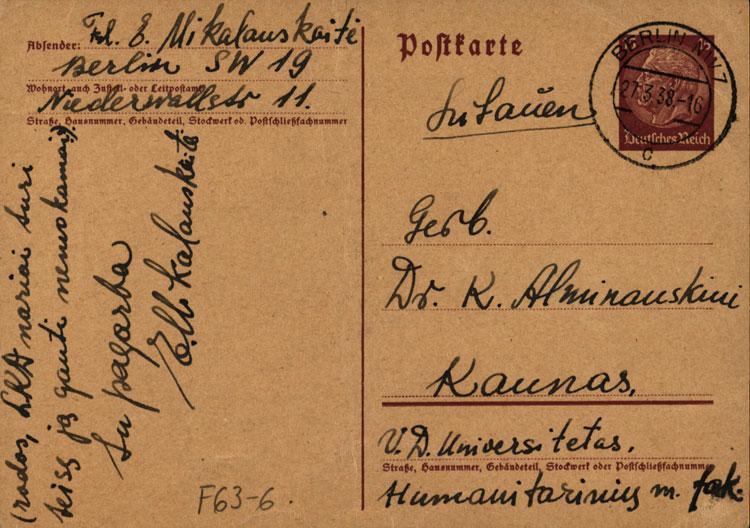 Absender: Frl. E. Mikalauskaitė
Berlin SW 19
Wohnort, auch Zustell- oder Leitpostamt
Niederwallstr 11.
Straße, Hausnummer, Gebäudeteil, Stockwerk od. Postschließfachnummer
(rodos, LKA nariai turi
teisę ją gauti nemokamai).
Su pagarba
Elb Kalauskaitė
F63-6.
Postkarte
BERLIN NW7
27.3.38-16
c
Deutsches Reich
Litauen
Gerb.
Dr. K. Alminauskiui
Kaunas,
V. D. Universitetas,
Straße, Hausnummer, Gebäudeteil, Stockwerk oder Postschließfachnummer
Humanitarinių m. fak.